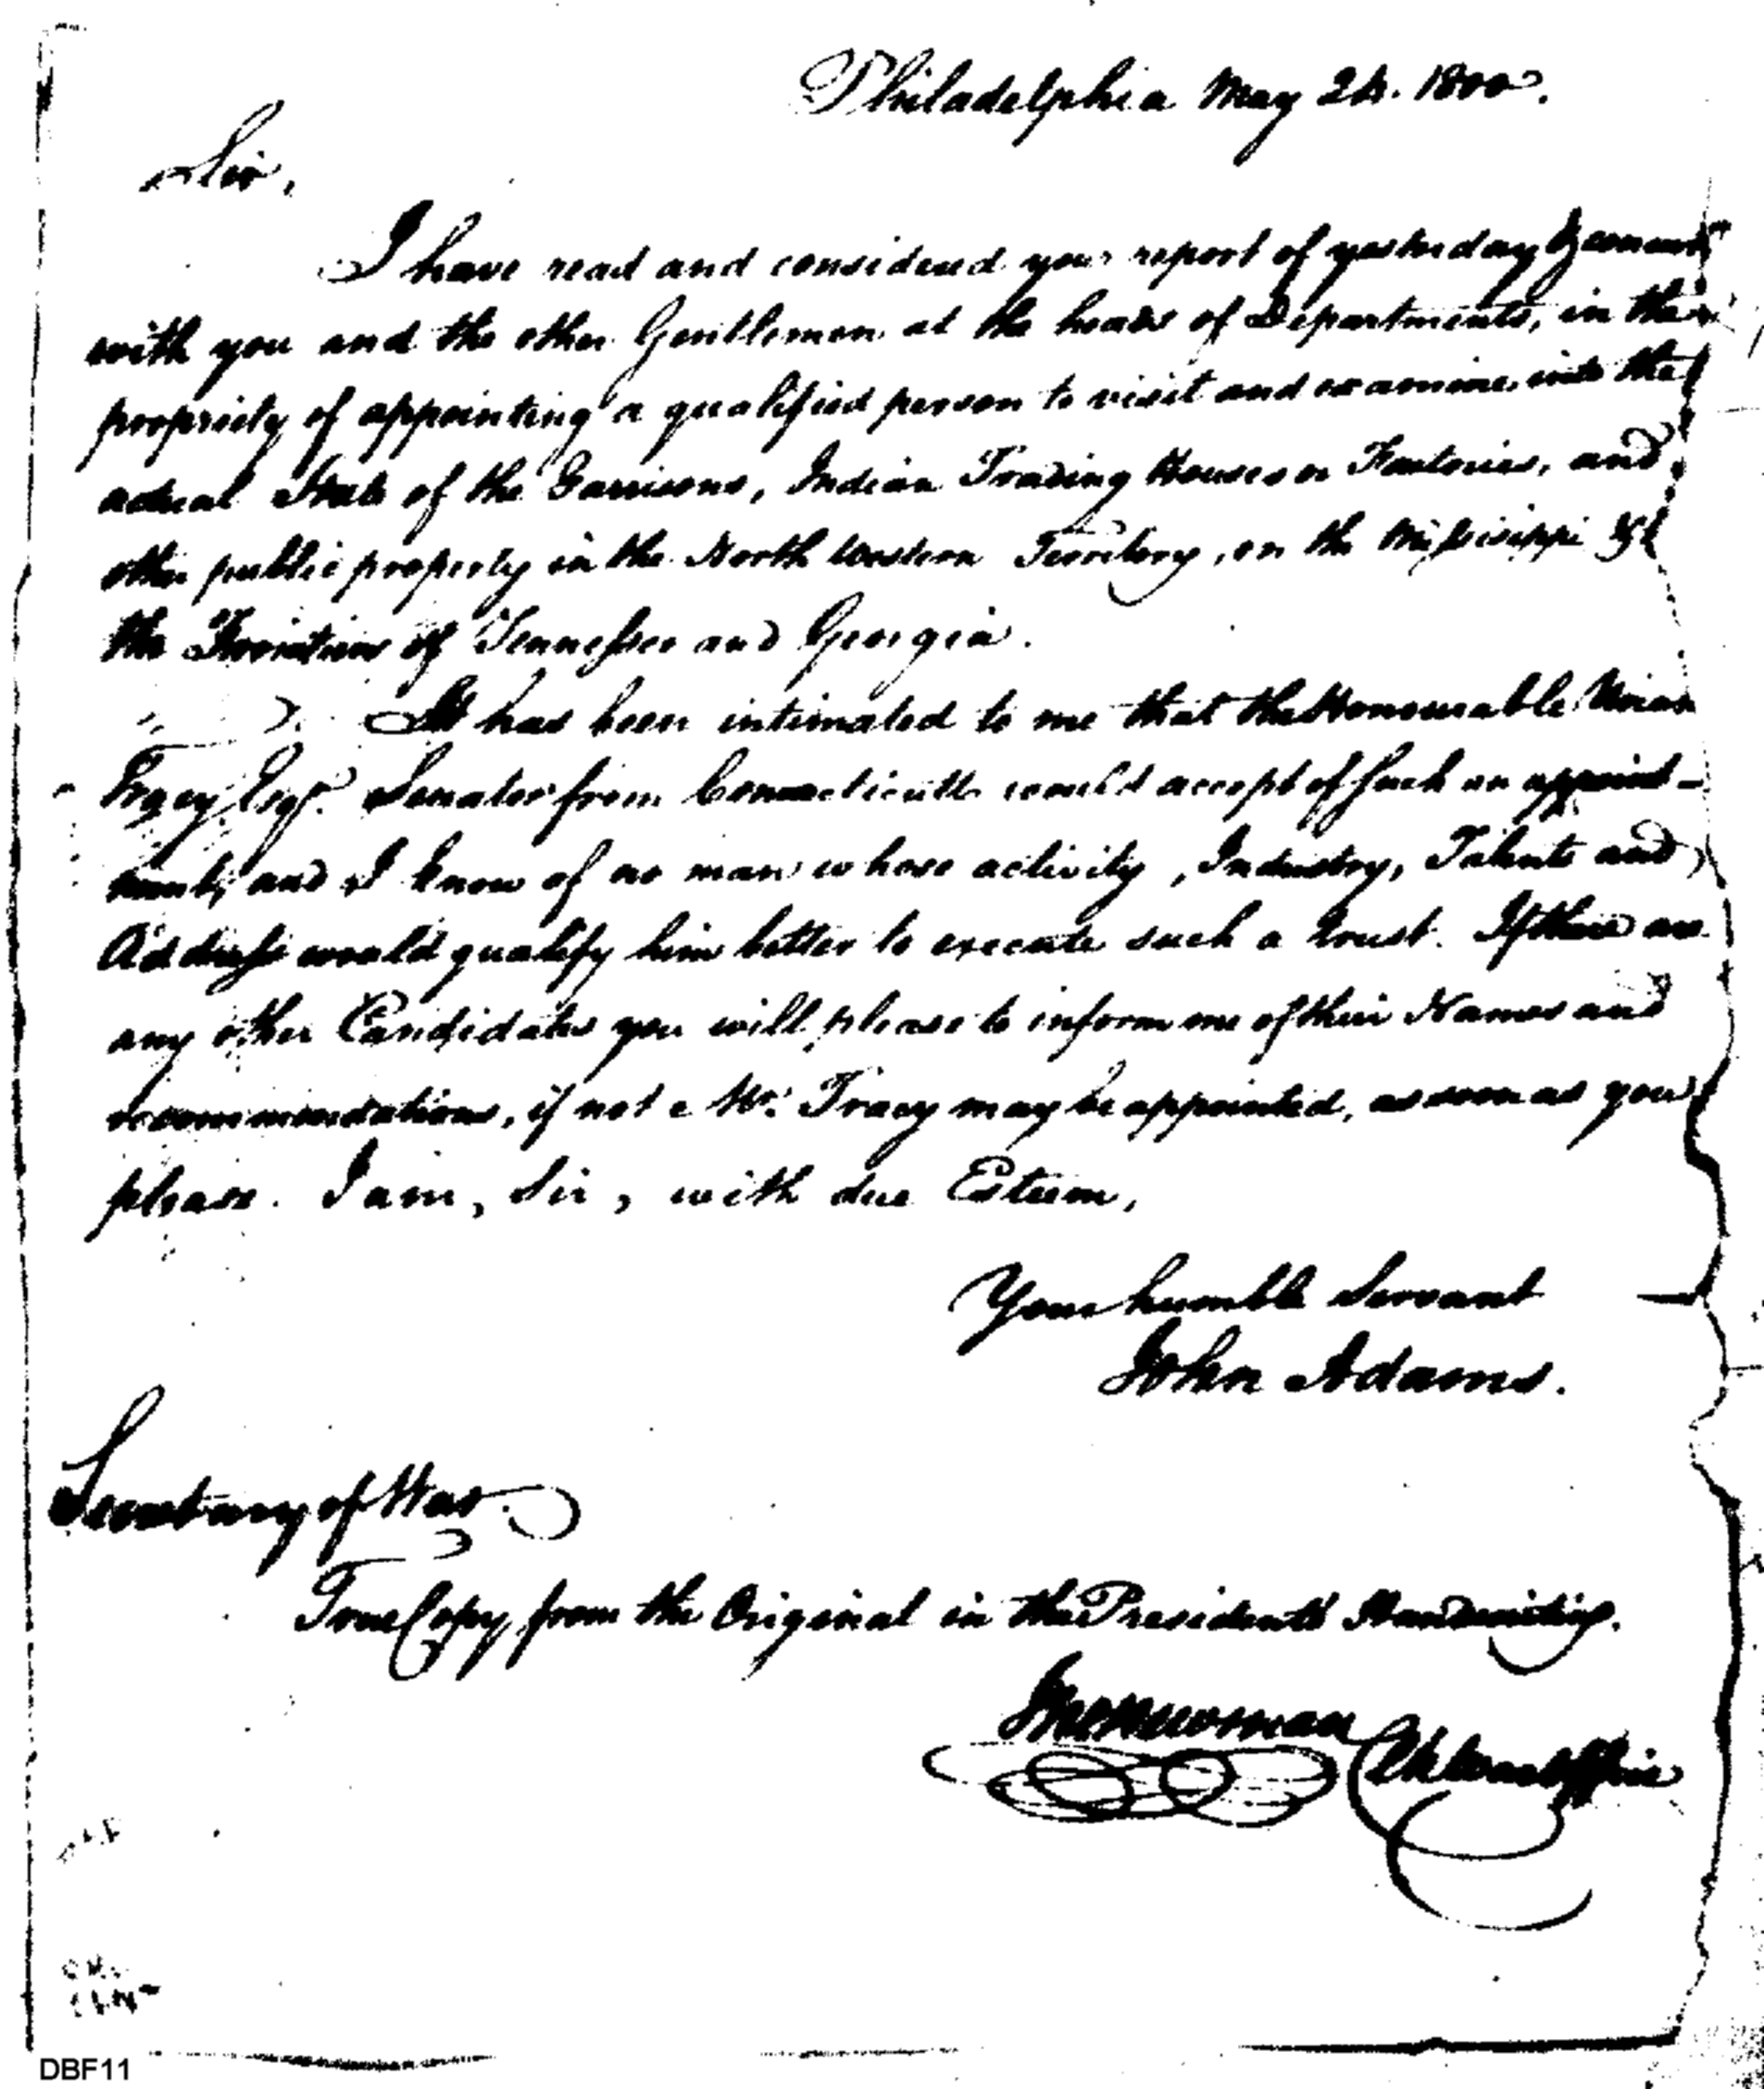 Philadelphia May 24. 1800.
Sir,
I have read and considered your report of yesterday & concur
with you and the other Gentlemen at the heads of Departments, in the
propriety of appointing a qualified person to visit and examine into the
actual State of the Garrisons, Indian Trading Houses or Factories, and
other public property in the North Western Territory, on the Missisippi &
the Frontiers of Tennessee and Georgia.
It has been intimated to me that the Honourable Uriah
Tracy Esqr. Senator from Connecticutt would accept of such an appoint-
ment, and I know of no man whose activity, Industry, Talents and
Address would qualify him better to execute such a trust. If there are
any other Candidates you will please to inform me of their Names and
recommendations, if not Mr. Tracy may be appointed, as soon as you
please. I am, Sir, with due Esteem,
Your humble Servant
John Adams.
Secretary of War.
True Copy from the Original in the Presidents Handwriting.
Jno Newman Ck War Office
DBF11